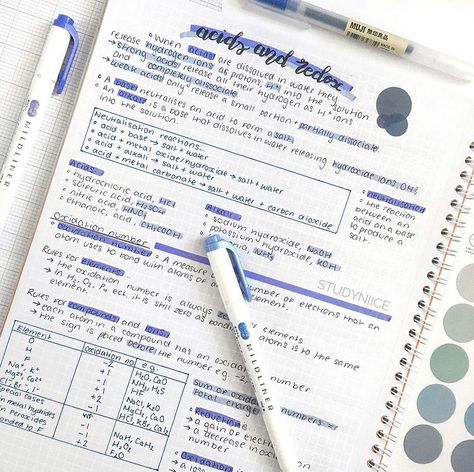 acids and redox
MUJI 無印良品
MILDLINER
When acids are dissolved in water they
release hydrogen ions as protons, H⁺ into the solution
→ strong acids release all their hydrogen as H⁺ ions
and completely dissociate
→ weak acids only release a small portion + partially dissociate
into the solution.
A base neutralises an acid to form a salt
An alkali is a base that dissolves in water releasing hydroxide ions, OH⁻
Neutralisation reactions...
acid + base → salt + water
acid + metal oxide/hydroxide → salt + water
acid + alkali → salt + water
acid + metal carbonate → salt + water + carbon dioxide
Neutralisation
the reaction
between an
acid and
a base to
produce a
salt.
Acids
hydrochloric acid, HCl
sulfuric acid, H₂SO₄
nitric acid, HNO₃
ethanoic acid, CH₃COOH
Alkali
sodium hydroxide, NaOH
potassium hydroxide, KOH
NH₃
Oxidation number
Oxidation number: A measure of the number of electrons that an
atom uses to bond with atoms of element.
STUDYNIICE
Rules for elements
the oxidation number is always elements
→ In H₂, O₂, P₄ ect. it is still zero as bonding atoms is to the same
element.
Rules for compounds and ions
→ each atom in a compound has an oxidation number
→ the sign is placed before the number e.g. -2,
Element oxidation no. e.g.
O -2 H₂O, CaO
H +1 NH₃, H₂S
F -1 HF
Na⁺, K⁺ +1 NaCl, K₂O
Mg²⁺, Ca²⁺ +2 MgCl₂, CaO
Cl⁻, Br⁻, I⁻ -1 HCl, KBr, CaI₂
special cases
in metal hydrides -1 NaH, CaH₂
in peroxides -1 H₂O₂
bonded to F +2 F₂O
MILDLINER
Sum of oxidation numbers =
total charge
Reduction
→ a gain of electrons
→ a decrease in oxidation
number
Oxidation is